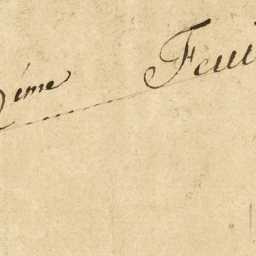 ème Feui